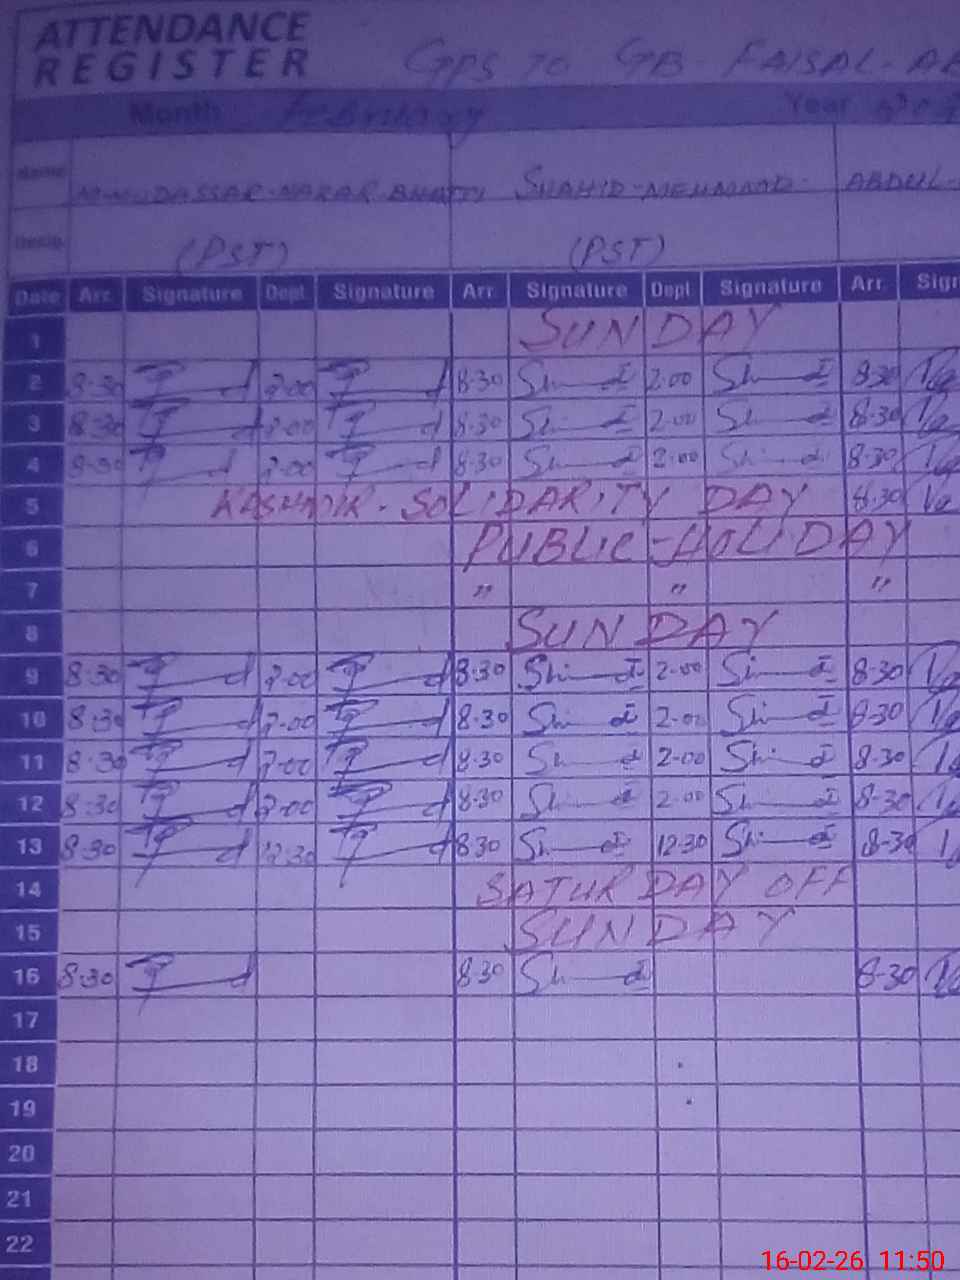 ATTENDANCE
REGISTER
GPS TO GB FAISAL AB
Month February Year
Name M-MUDASSAR-NAZAR BHATTI SHAHID-MEHMOOD ABDUL-
Desig. (PST) (PST)
Date Arr. Signature Dept. Signature Arr. Signature Dept. Signature Arr. Sigr
1 SUNDAY
2 8-30 2-00 8-30 2-00 8-30
3 8-30 2-00 8-30 2-00 8-30
4 8-30 2-00 8-30 2-00 8-30
5 KASHMIR-SOLIDARITY DAY 8-30
6 PUBLIC-HOLIDAY
7 " " "
8 SUNDAY
9 8-30 2-00 8-30 2-00 8-30
10 8-30 2-00 8-30 2-00 8-30
11 8-30 2-00 8-30 2-00 8-30
12 8-30 2-00 8-30 2-00 8-30
13 8-30 12-30 8-30 12-30 8-30
14 SATURDAY OFF
15 SUNDAY
16 8-30 8-30 8-30
17
18
19
20
21
22
16-02-26 11:50